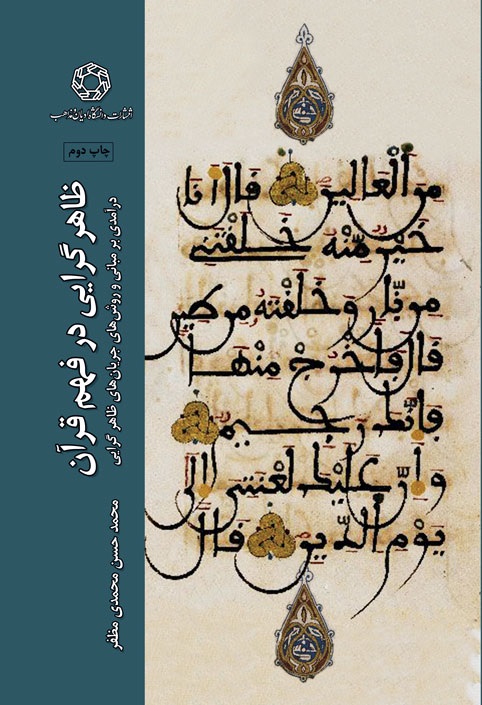 انتشارات دانشگاه ادیان و مذاهب
چاپ دوم
ظاهرگرایی در فهم قرآن
درآمدی بر مبانی و روش‌های جریان‌های ظاهرگرایی
محمد حسن محمدی مظفر
مِنَ الْعَالِينَ قَالَ أَنَا
خَيْرٌ مِنْهُ خَلَقْتَنِي
مِنْ نَارٍ وَخَلَقْتَهُ مِنْ طِينٍ
قَالَ فَاخْرُجْ مِنْهَا
فَإِنَّكَ رَجِيمٌ
وَإِنَّ عَلَيْكَ لَعْنَتِي إِلَى
يَوْمِ الدِّينِ قَالَ